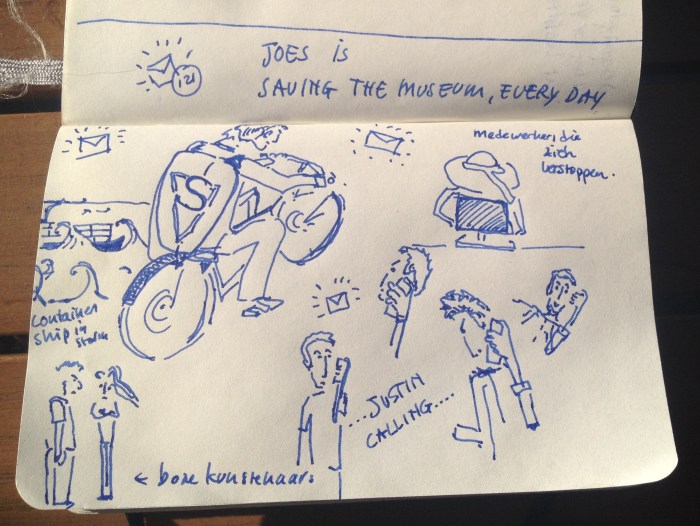 JOES is
SAVING THE MUSEUM, EVERY DAY
121
medewerkers die
zich
verstoppen.
S
container
ship in
storm
...JUSTIN
CALLING....
← boze kunstenaars